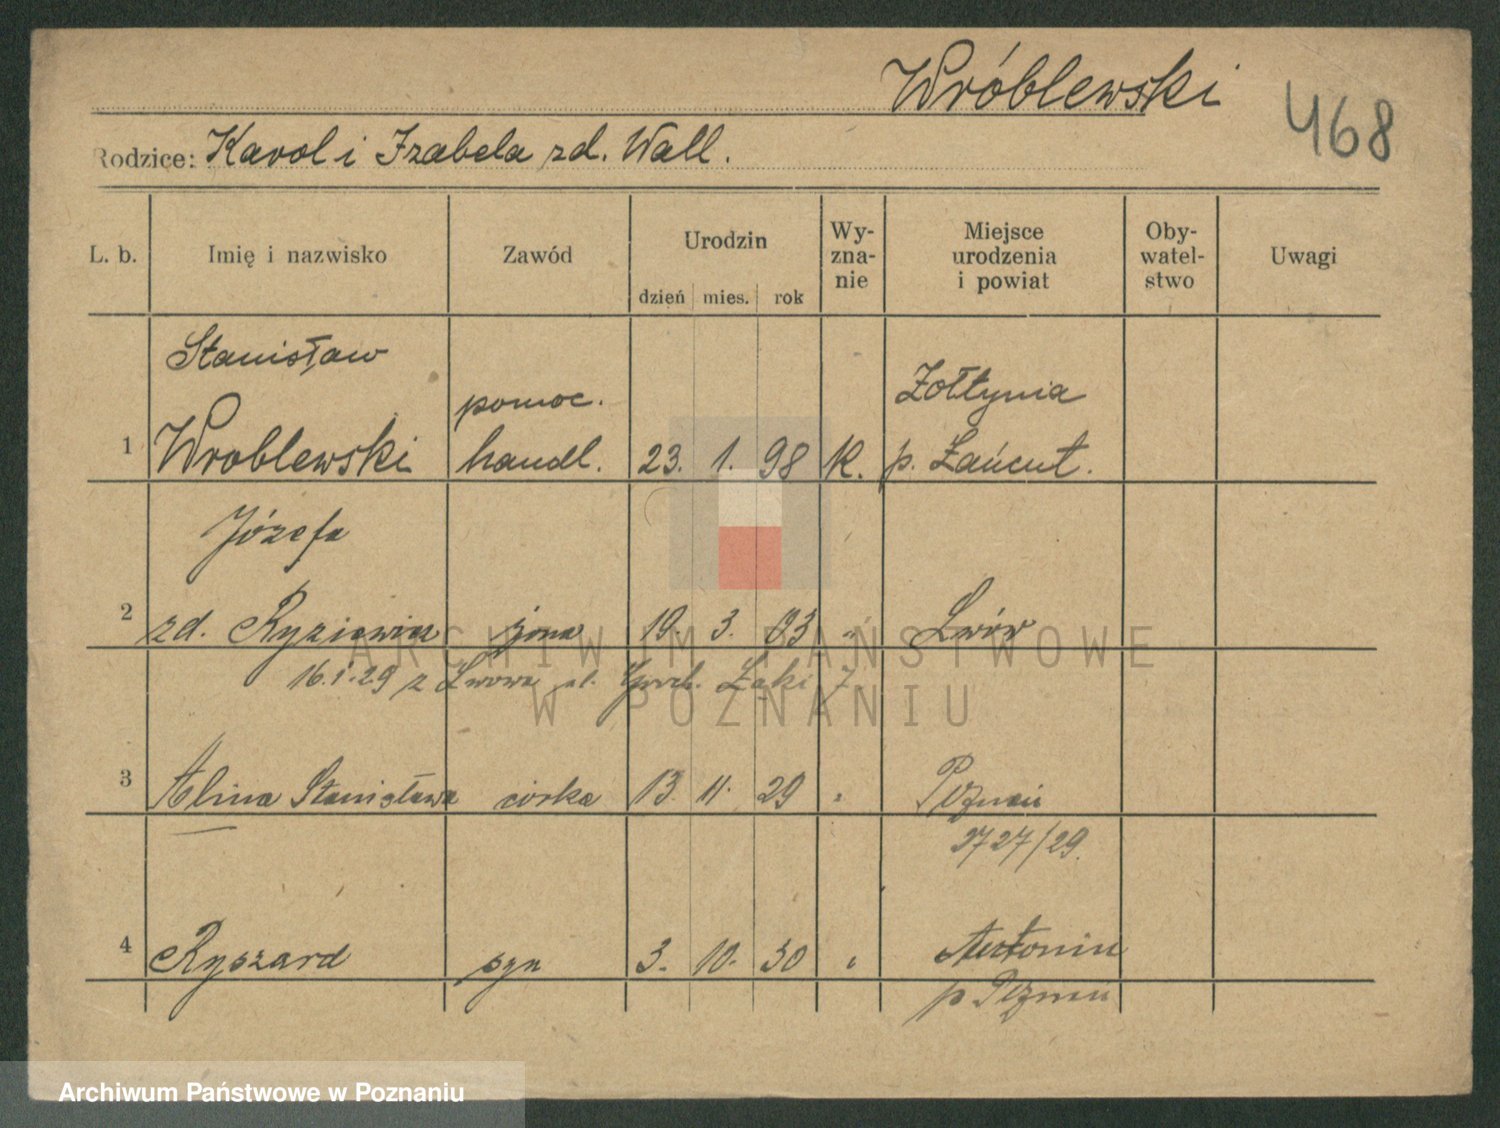 Wróblewski
468
Rodzice: Karol i Izabela zd. Wall.
L. b. Imię i nazwisko Zawód Urodzin dzień mies. rok Wy-zna-nie Miejsce urodzenia i powiat Oby-watel-stwo Uwagi
Stanisław
pomoc. Żołtynia
1 Wroblewski handl. 23. 1. 98 K. p. Łańcut.
Józefa
2 zd. Ryziewicz żona 19. 3. 03 " Lwów
16.1.29 z Lwowa ul. Łąki 7
3 Alina Stanisława córka 13. 11. 29 " Poznań
2727/29.
4 Ryszard syn 3. 10. 30 " Antonin
p. Poznań
ARCHIWUM PAŃSTWOWE
W POZNANIU
Archiwum Państwowe w Poznaniu